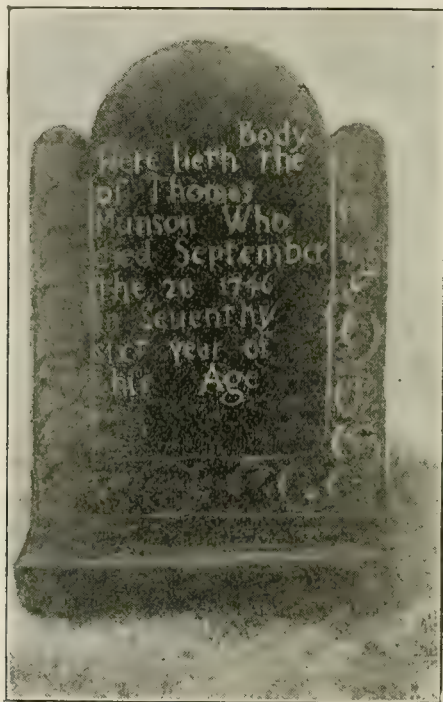 Body
Here lieth the
of Thomas
Munson Who
died September
the 28 1746
in Seuenthy
six year of
his Age